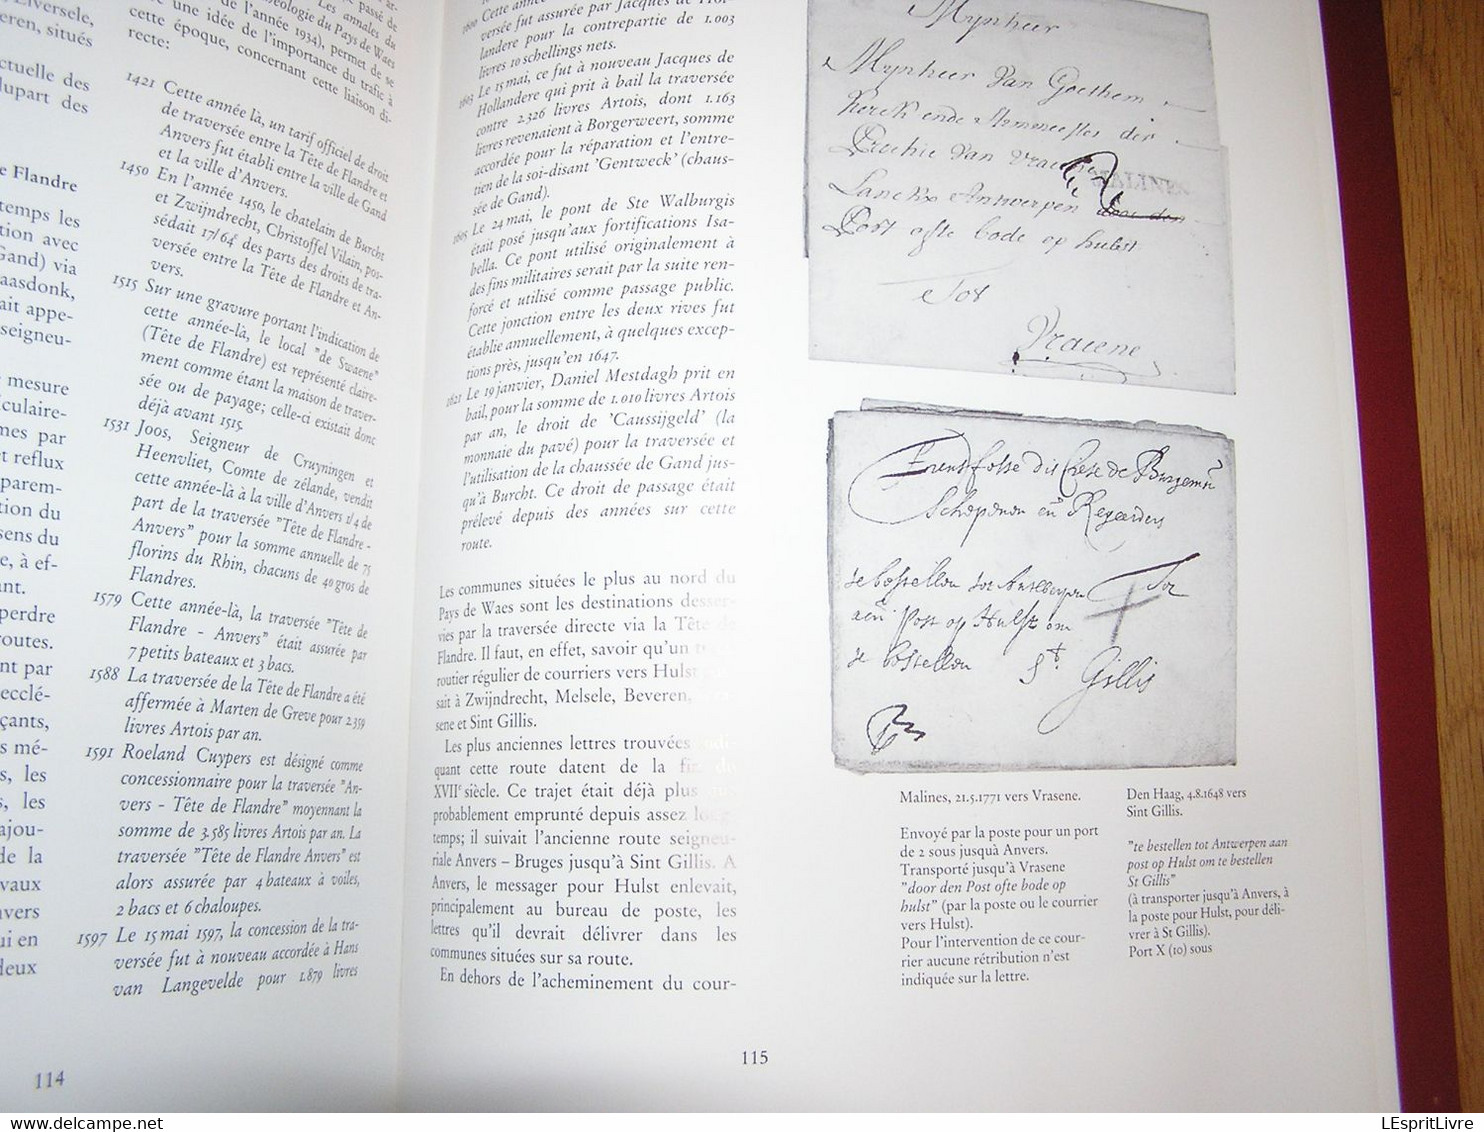 Liversele,
eren, situés
ctuelle des
lupart des
e Flandre
temps les
tion avec
Gand) via
aasdonk,
ait appe-
seigneu-
mesure
culaire-
mes par
et reflux
parem-
tion du
sens du
e, à ef-
ant.
perdre
routes.
nt par
ecclé-
çants,
s mé-
s, les
s, les
ajou-
de la
vaux
nvers
ui en
deux
114
passé de
l'année 1934), permet de se
une idée de l'importance du trafic à
cette époque, concernant cette liaison di-
recte:
1421 Cette année là, un tarif officiel de droit
de traversée entre la Tête de Flandre et
Anvers fut établi entre la ville de Gand
et la ville d'Anvers.
1450 En l'année 1450, le chatelain de Burcht
et Zwijndrecht, Christoffel Vilain, pos-
sédait 17/64e des parts des droits de tra-
versée entre la Tête de Flandre et An-
vers.
1515 Sur une gravure portant l'indication de
cette année-là, le local "de Swaene"
(Tête de Flandre) est représenté claire-
ment comme étant la maison de traver-
sée ou de payage; celle-ci existait donc
déjà avant 1515.
1531 Joos, Seigneur de Cruyningen et
Heenvliet, Comte de zélande, vendit
cette année-là à la ville d'Anvers 1/4 de
part de la traversée "Tête de Flandre -
Anvers" pour la somme annuelle de 75
florins du Rhin, chacuns de 40 gros de
Flandres.
1579 Cette année-là, la traversée "Tête de
Flandre - Anvers" était assurée par
7 petits bateaux et 3 bacs.
1588 La traversée de la Tête de Flandre a été
affermée à Marten de Greve pour 2.359
livres Artois par an.
1591 Roeland Cuypers est désigné comme
concessionnaire pour la traversée "An-
vers - Tête de Flandre" moyennant la
somme de 3.585 livres Artois par an. La
traversée "Tête de Flandre Anvers" est
alors assurée par 4 bateaux à voiles,
2 bacs et 6 chaloupes.
1597 Le 15 mai 1597, la concession de la tra-
versée fut à nouveau accordée à Hans
van Langevelde pour 1.879 livres
1600 Cette année
versée fut assurée par Jacques de Hol-
landere pour la contrepartie de 1.003
livres 10 schellings nets.
1603 Le 15 mai, ce fut à nouveau Jacques de
Hollandere qui prit à bail la traversée
contre 2.326 livres Artois, dont 1.163
livres revenaient à Borgerweert, somme
accordée pour la réparation et l'entre-
tien de la soi-disant 'Gentweck' (chaus-
sée de Gand).
1605 Le 24 mai, le pont de Ste Walburgis
était posé jusqu'aux fortifications Isa-
bella. Ce pont utilisé originalement à
des fins militaires serait par la suite ren-
forcé et utilisé comme passage public.
Cette jonction entre les deux rives fut
établie annuellement, à quelques excep-
tions près, jusqu'en 1647.
1621 Le 19 janvier, Daniel Mestdagh prit en
bail, pour la somme de 1.010 livres Artois
par an, le droit de 'Caussijgeld' (la
monnaie du pavé) pour la traversée et
l'utilisation de la chaussée de Gand jus-
qu'à Burcht. Ce droit de passage était
prélevé depuis des années sur cette
route.
Les communes situées le plus au nord du
Pays de Waes sont les destinations desser-
vies par la traversée directe via la Tête de
Flandre. Il faut, en effet, savoir qu'un
routier régulier de courriers vers Hulst
sait à Zwijndrecht, Melsele, Beveren,
sene et Sint Gillis.
Les plus anciennes lettres trouvées
quant cette route datent de la fin du
XVIIe siècle. Ce trajet était déjà plus
probablement emprunté depuis assez
temps; il suivait l'ancienne route seigneu-
riale Anvers – Bruges jusqu'à Sint Gillis. A
Anvers, le messager pour Hulst enlevait,
principalement au bureau de poste, les
lettres qu'il devrait délivrer dans les
communes situées sur sa route.
En dehors de l'acheminement du cour-
115
Mynheer
Mynheer Van Goethem
kerck ende Armmeester der
Prochie Van Vracene
MALINES
Lancks Antwerpen door den
Port ofte bode op hulst
Tot
Vracene
Schepenen en Regeerders
te bestellen tot Antwerpen
aen post op Hulst om
te bestellen St. Gillis
Malines, 21.5.1771 vers Vrasene.
Envoyé par la poste pour un port
de 2 sous jusquà Anvers.
Transporté jusqu'à Vrasene
"door den Post ofte bode op
hulst" (par la poste ou le courrier
vers Hulst).
Pour l'intervention de ce cour-
rier aucune rétribution n'est
indiquée sur la lettre.
Den Haag, 4.8.1648 vers
Sint Gillis.
"te bestellen tot Antwerpen aan
post op Hulst om te bestellen
St Gillis"
(à transporter jusqu'à Anvers, à
la poste pour Hulst, pour déli-
vrer à St Gillis).
Port X (10) sous
LEspritLivre